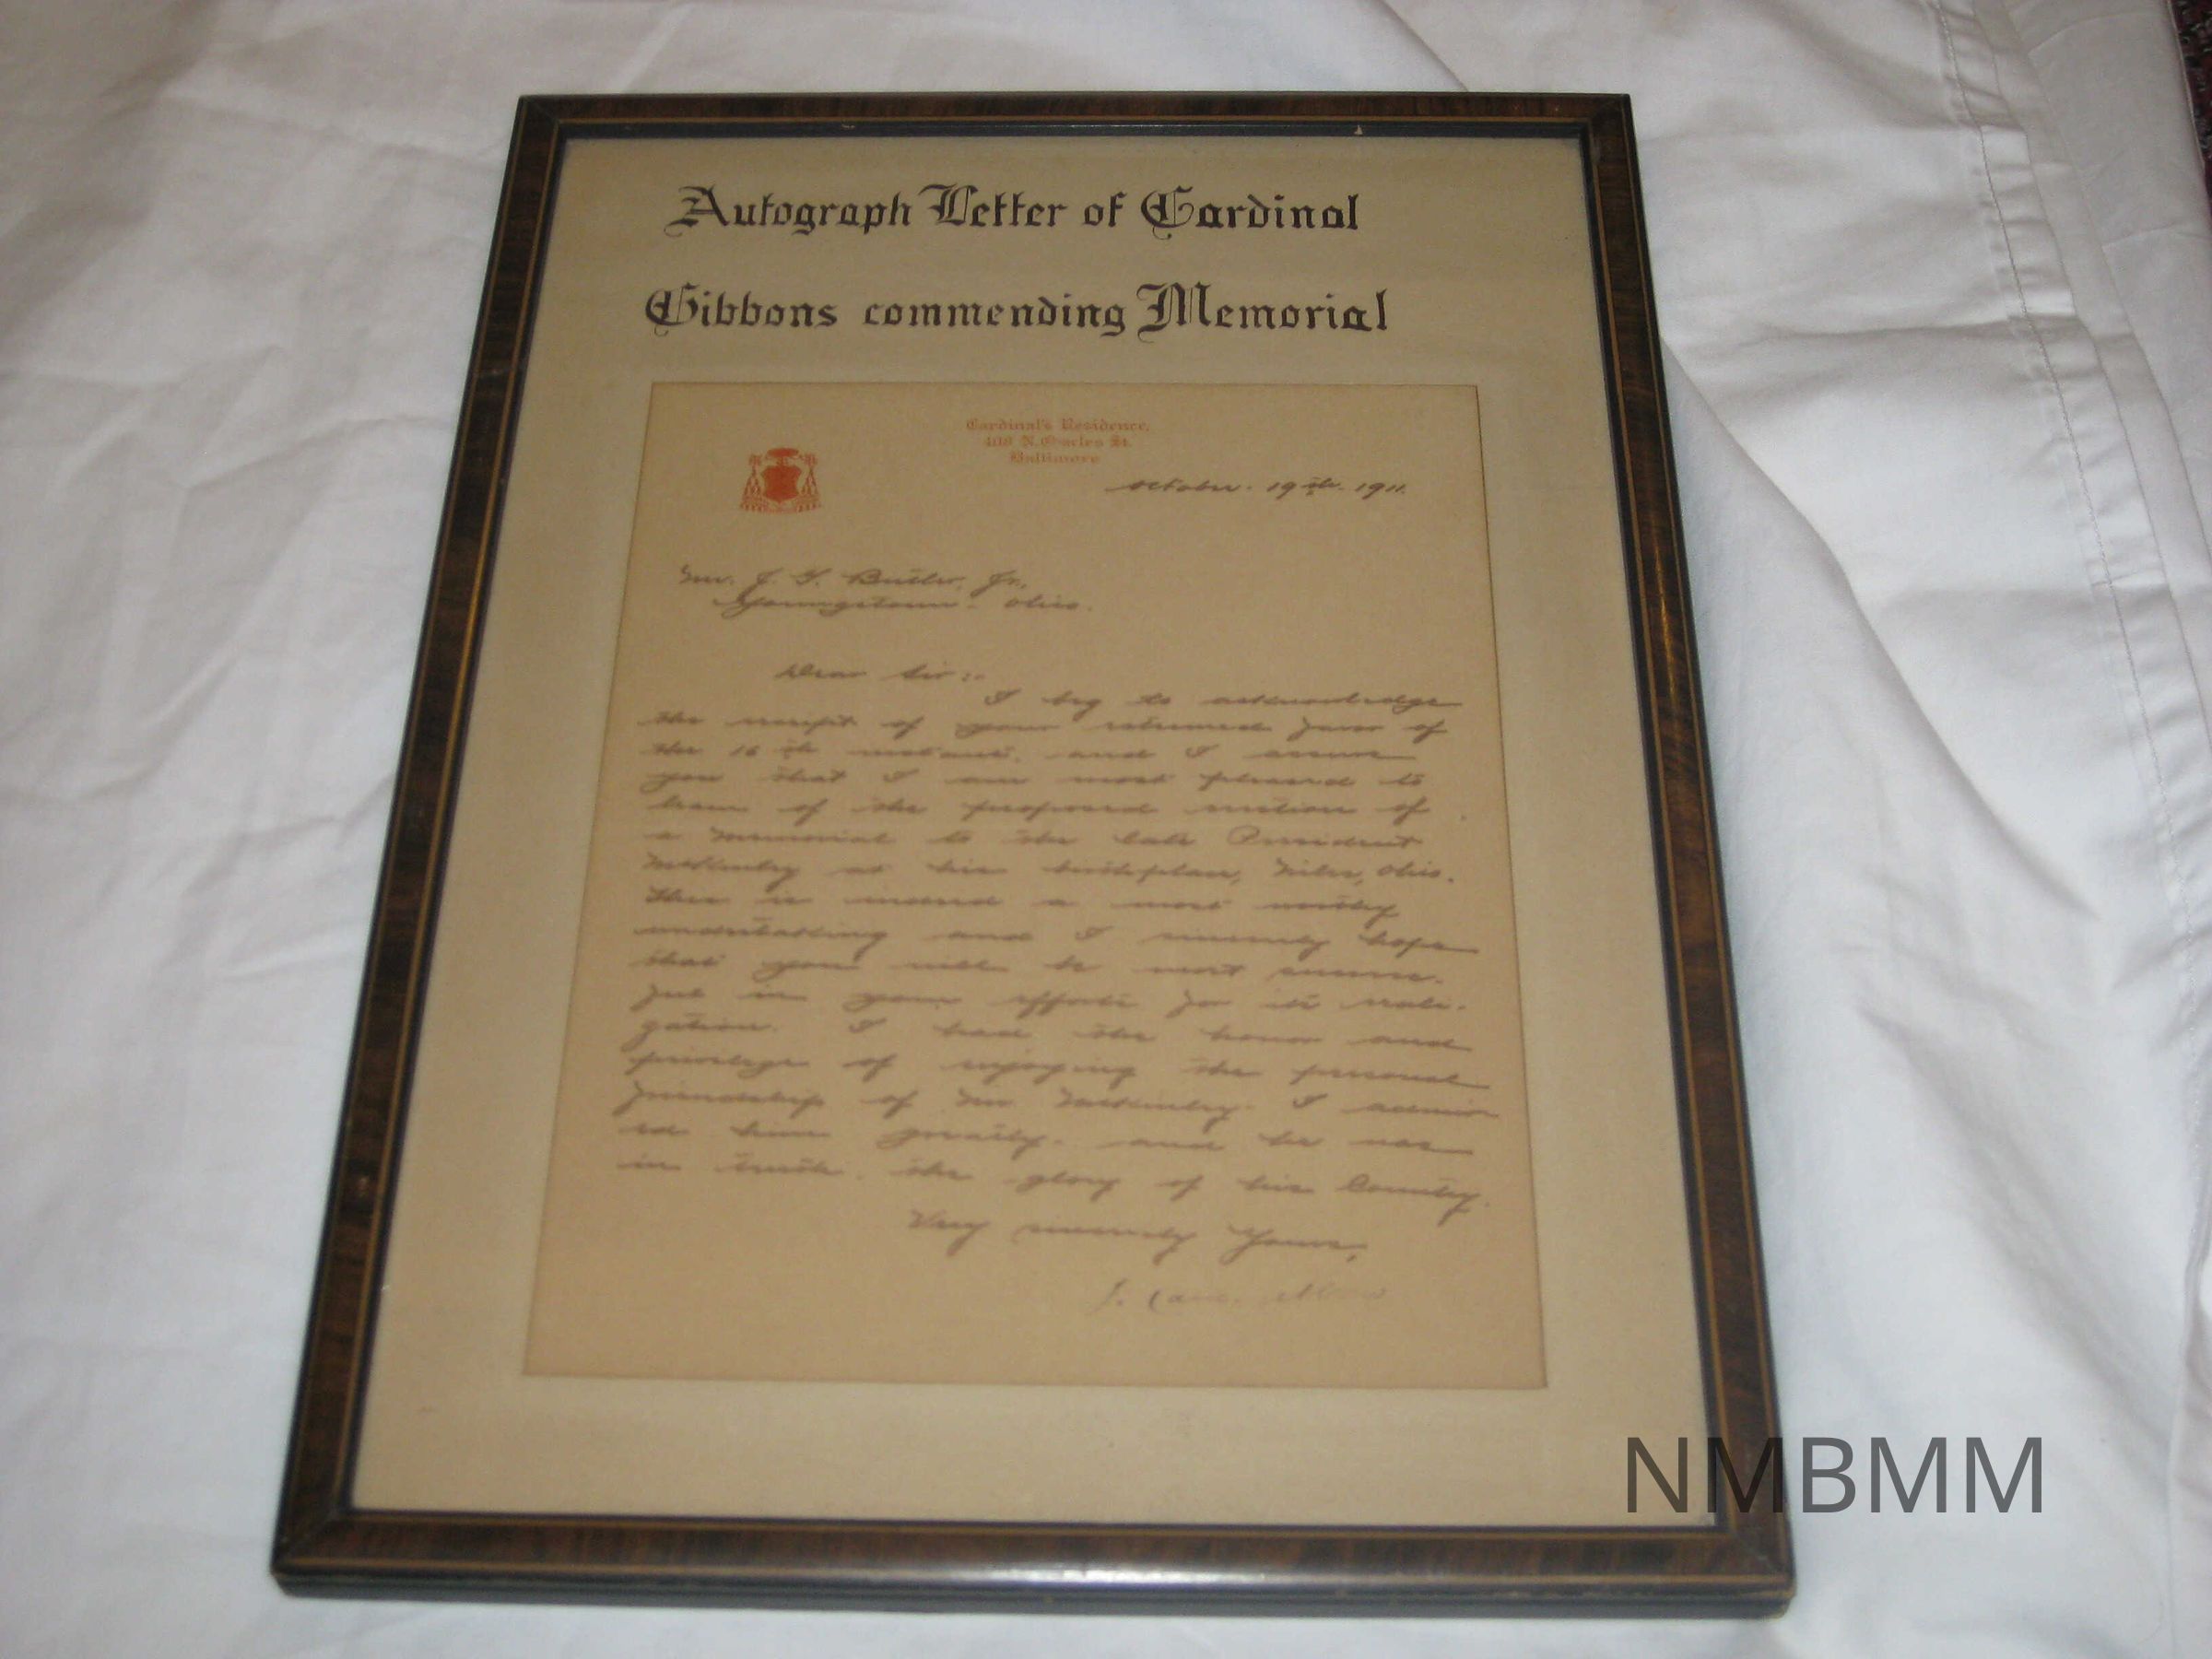 Autograph Letter of Cardinal
Gibbons commending Memorial
Cardinal's Residence,
408 N. Charles St.
Baltimore
October. 19th. 1911.
Mr. J. G. Butler, Jr.
Youngstown. Ohio.
Dear Sir:-
I beg to acknowledge
the receipt of your esteemed favor of
the 16th instant. and I assure
you that I am most pleased to
learn of the proposed erection of
a memorial to the late President
McKinley at his birthplace, Niles, Ohio.
This is indeed a most worthy
undertaking and I sincerely hope
that you will be most success-
ful in your efforts for its
I had the honor and
privilege of enjoying the personal
friendship of Mr McKinley. I admir
ed him greatly. and he was
in truth. the glory of his Country.
Very sincerely Yours,
J. Card. Gibbons
NMBMM